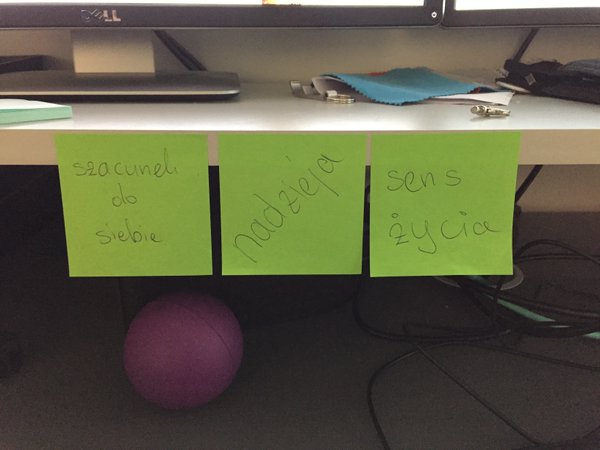 DELL
szacunek
do
siebie
nadzieja
sens
życia